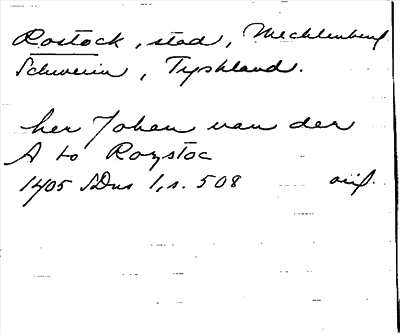 Rostock, stad, Mecklenburg
Schwerin, Tyskland.
her Johan van der
A to Rozstoc
1405 SDns 1, s. 508 orig.